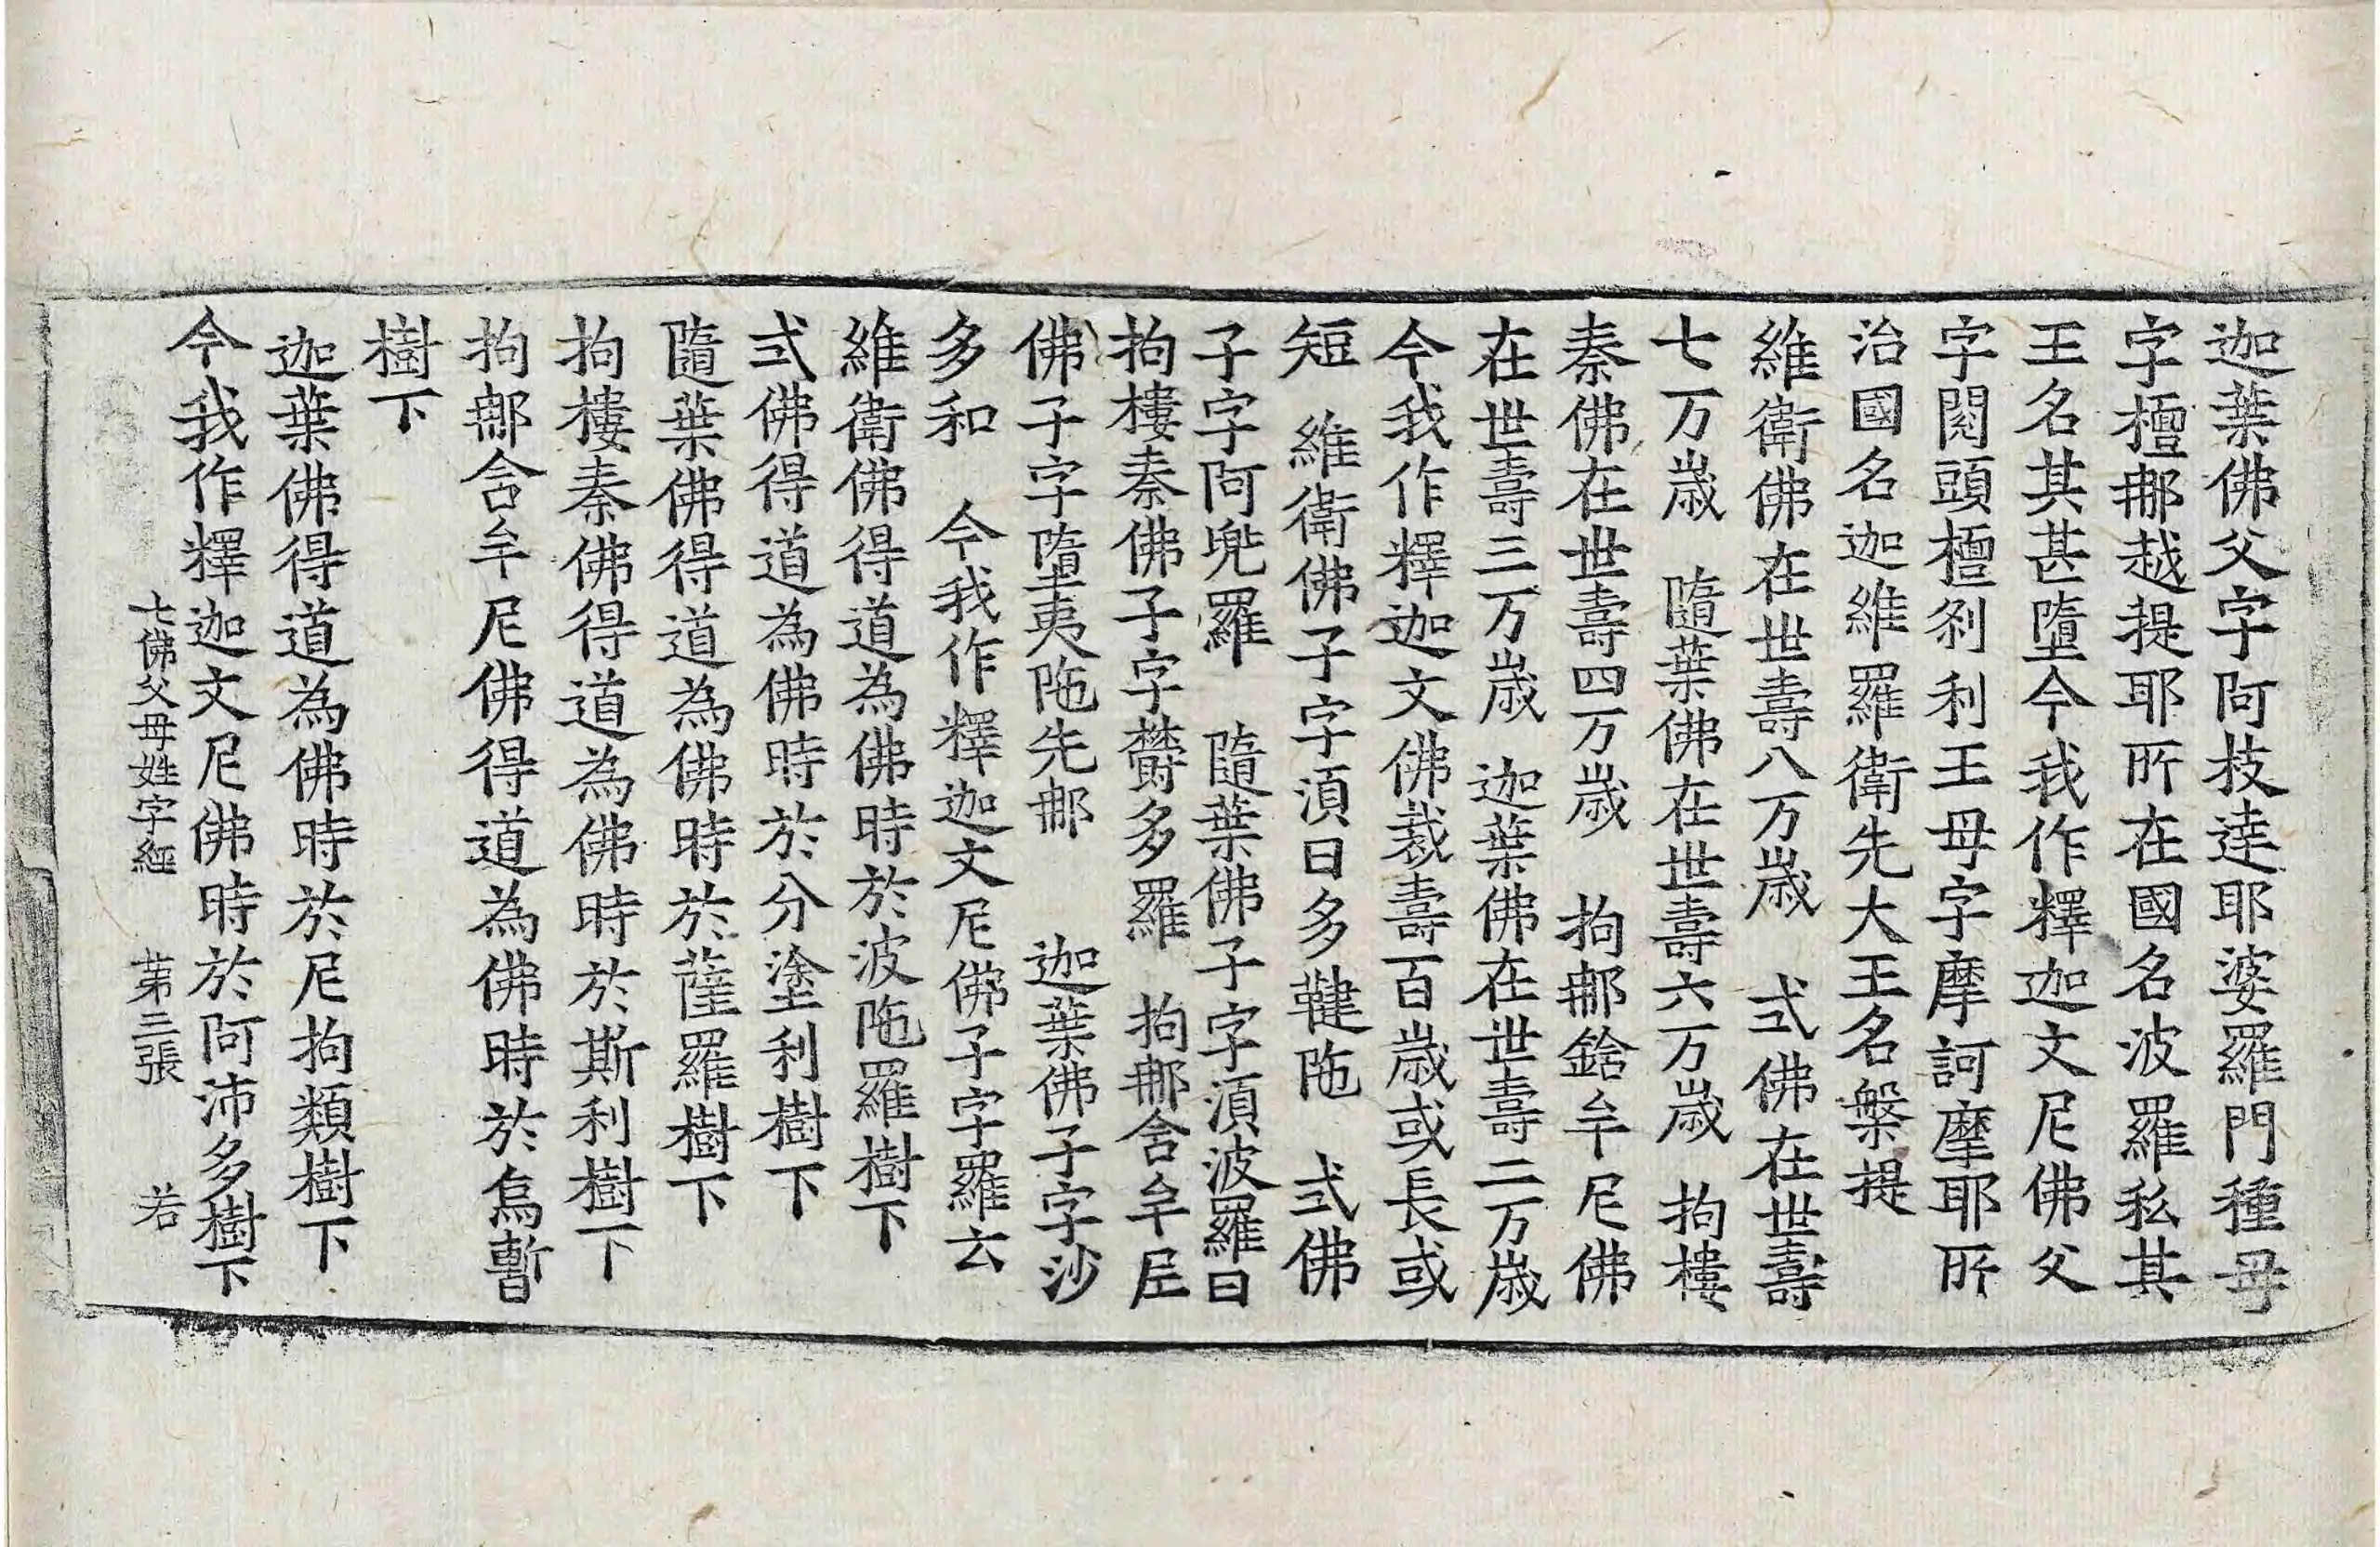 迦葉佛父字阿枝達耶婆羅門種母
字檀那越提耶所在國名波羅私其
王名其甚墮今我作釋迦文尼佛父
字閱頭檀刹利王母字摩訶摩耶所
治國名迦維羅衛先大王名槃提
維衛佛在世壽八万歲　式佛在世壽
七万歲　隨葉佛在世壽六万歲　拘樓
秦佛在世壽四万歲　拘那鋡牟尼佛
在世壽三万歲　迦葉佛在世壽二万歲
今我作釋迦文佛裁壽百歲或長或
短　維衛佛子字須曰多鞬陁　式佛
子字阿兜羅　隨葉佛子字須波羅曰
拘樓秦佛子字欝多羅　拘那含牟尼
佛子字墮夷陁先那　迦葉佛子字沙
多和　今我作釋迦文尼佛子字羅云
維衛佛得道為佛時於波陁羅樹下
式佛得道為佛時於分塗利樹下
隨葉佛得道為佛時於薩羅樹下
拘樓秦佛得道為佛時於斯利樹下
拘那含牟尼佛得道為佛時於烏暫
樹下
迦葉佛得道為佛時於尼拘類樹下
今我作釋迦文尼佛時於阿沛多樹下
七佛父母姓字經　第三張　若